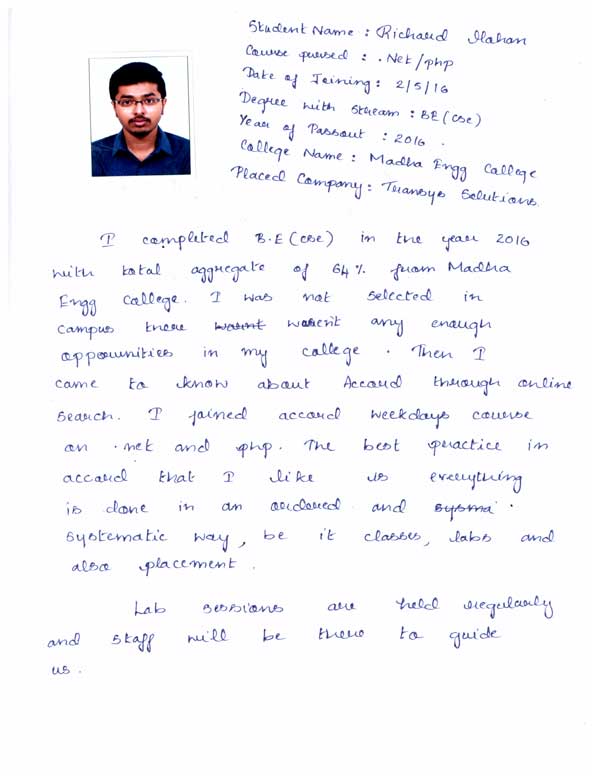 Student Name : Richard Ilahan
Course pursed : .Net/php
Date of Joining : 2/5/16
Degree with stream : BE (cse)
Year of Passout : 2016 .
College Name : Madha Engg College
Placed Company : Transys Solutions.
I completed B.E (cse) in the year 2016
with total aggregate of 64% from Madha
Engg College. I was not selected in
campus there wasnt wasen't any enough
oppourunities in my college . Then I
came to know about Accord through online
search. I joined accord weekdays course
on .net and php. The best practice in
accord that I like is everything
is done in an ordered and sysma .
systematic way, be it classes, labs and
also placement .
Lab sessions are held regularly
and staff will be there to guide
us .